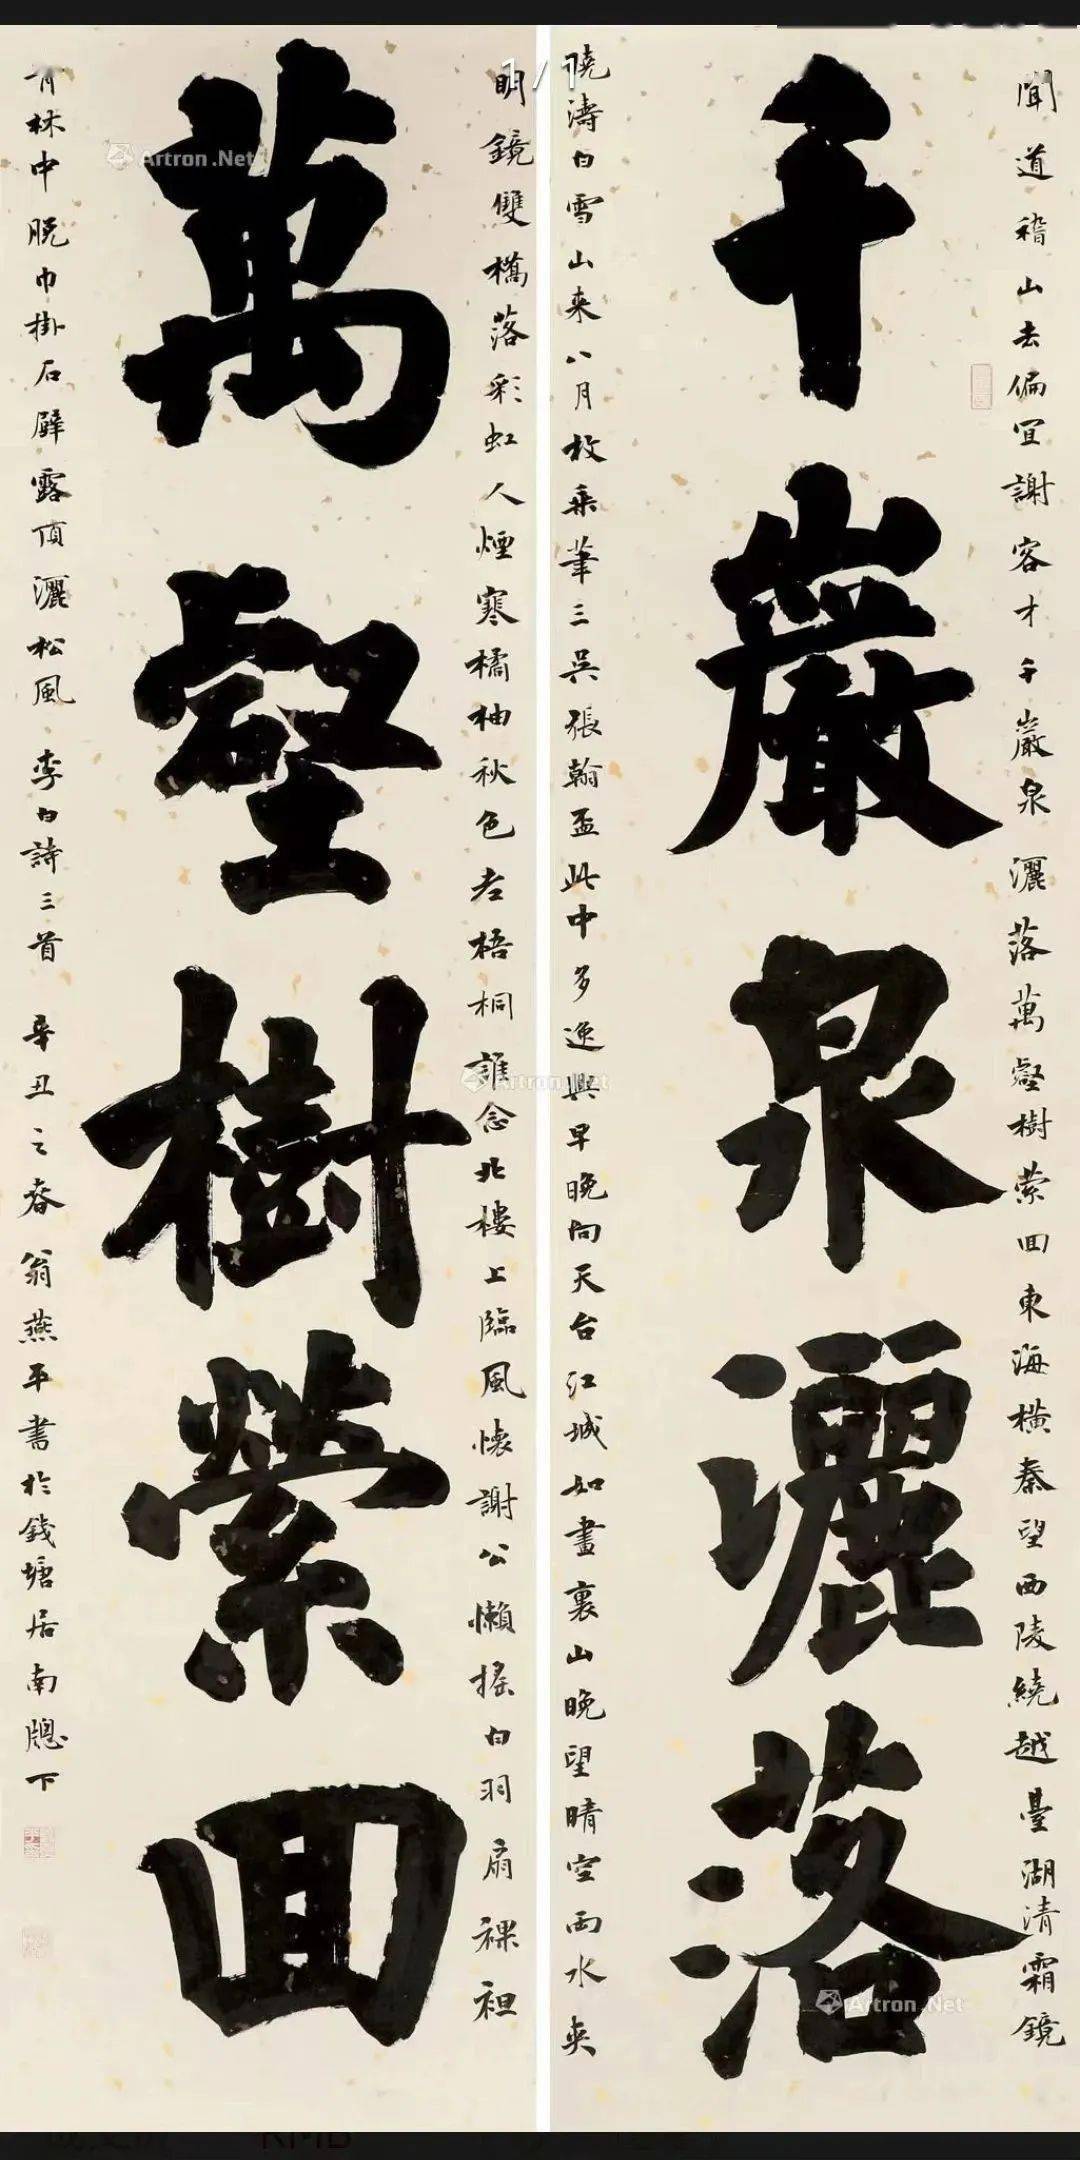 千巖泉灑落
萬壑樹縈回
聞道稽山去偏宜謝客才千巖泉灑落萬壑樹縈回東海橫秦望西陵繞越臺湖清霜鏡
曉濤白雪山來八月枚乘筆三吳張翰盃此中多逸興早晚向天台江城如畫裏山晚望晴空兩水夾
明鏡雙橋落彩虹人煙寒橘柚秋色老梧桐誰念北樓上臨風懷謝公懶搖白羽扇裸袒
青林中脫巾掛石壁露頂灑松風 李白詩三首 辛丑之春翁燕平書於錢塘居南窗下
1/1
Artron.Net
Artron.Net
Artron.Net